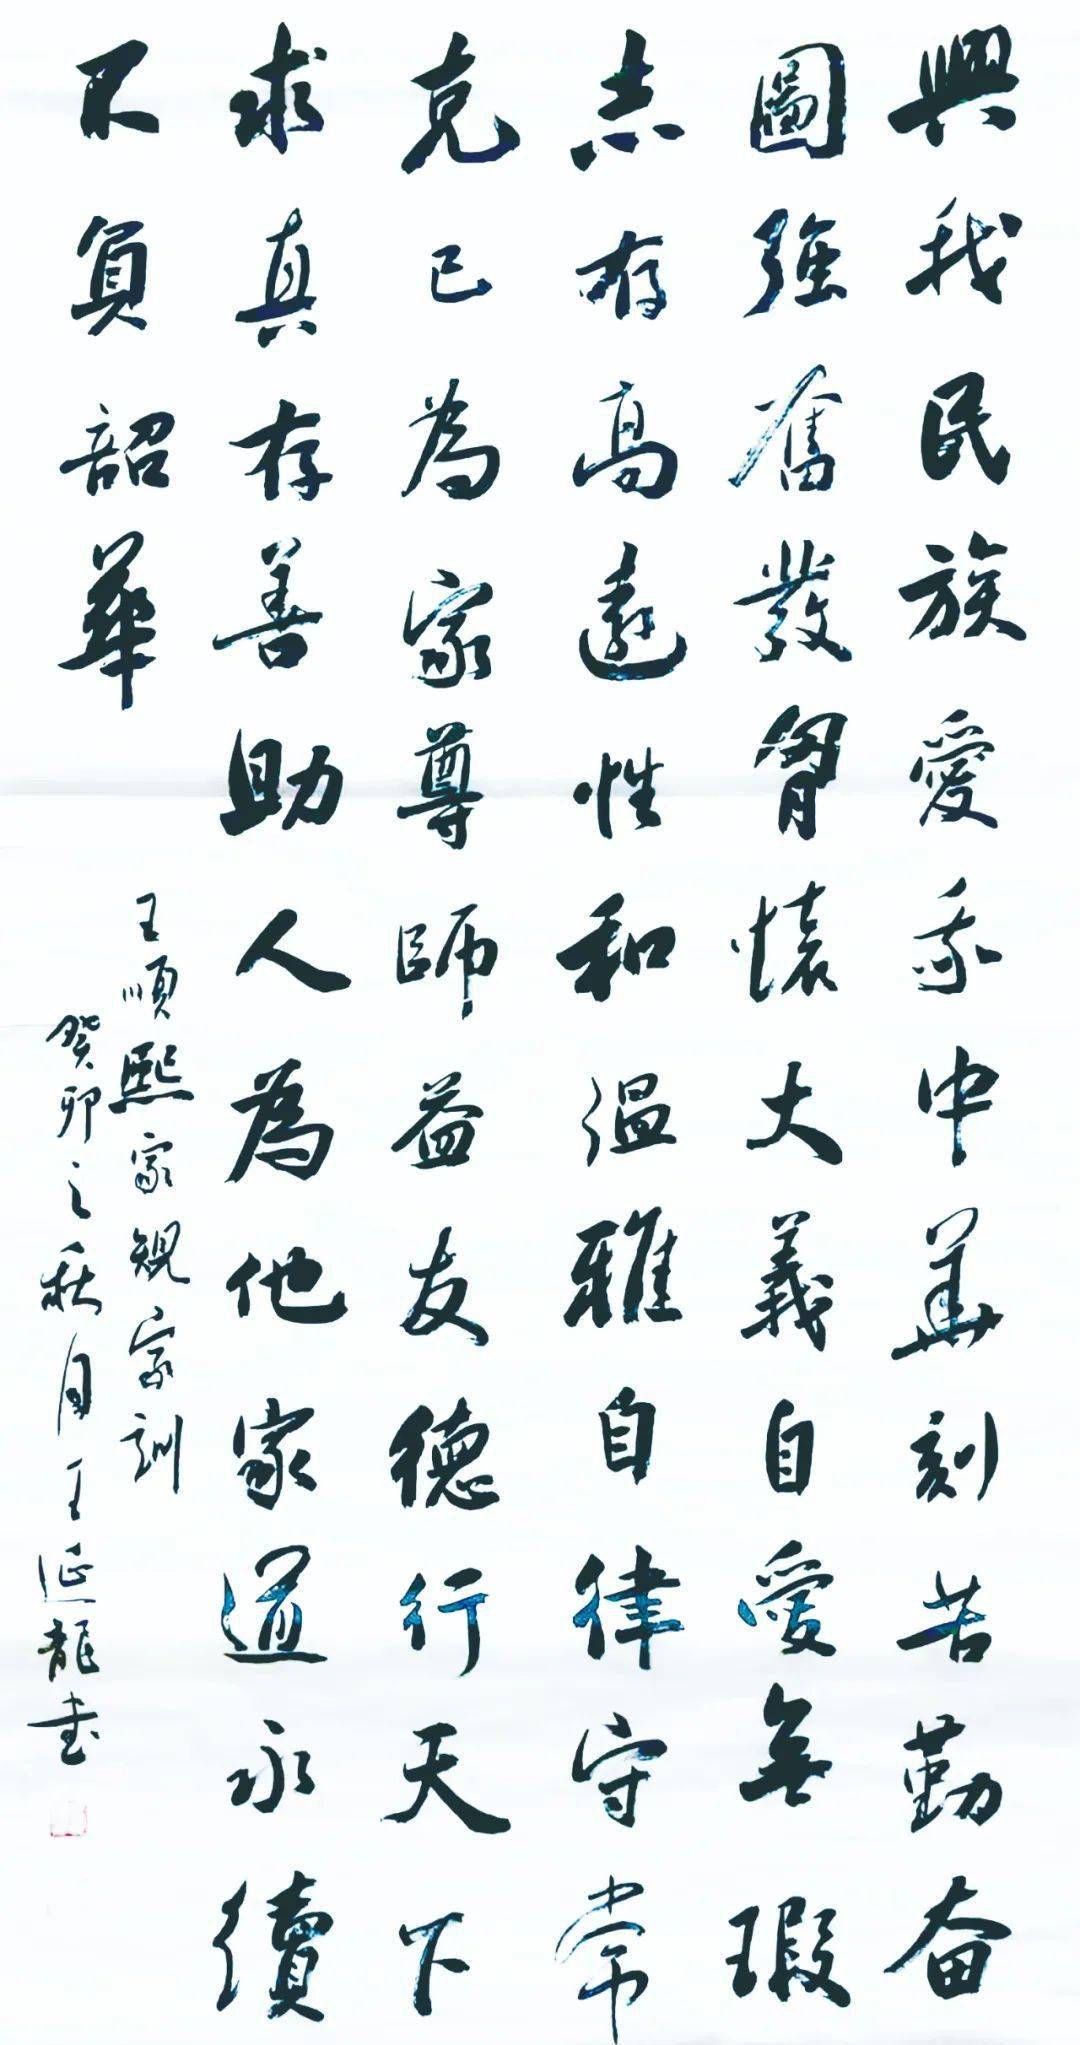 興我民族愛我中華刻苦勤奋
圖強奮發胷懷大義自愛無瑕
志存高遠性和温雅自律守常
克己為家尊師益友德行天下
求真存善助人為他家道永續
不負韶華
王順熙家規家訓
癸卯之秋月王延龍书